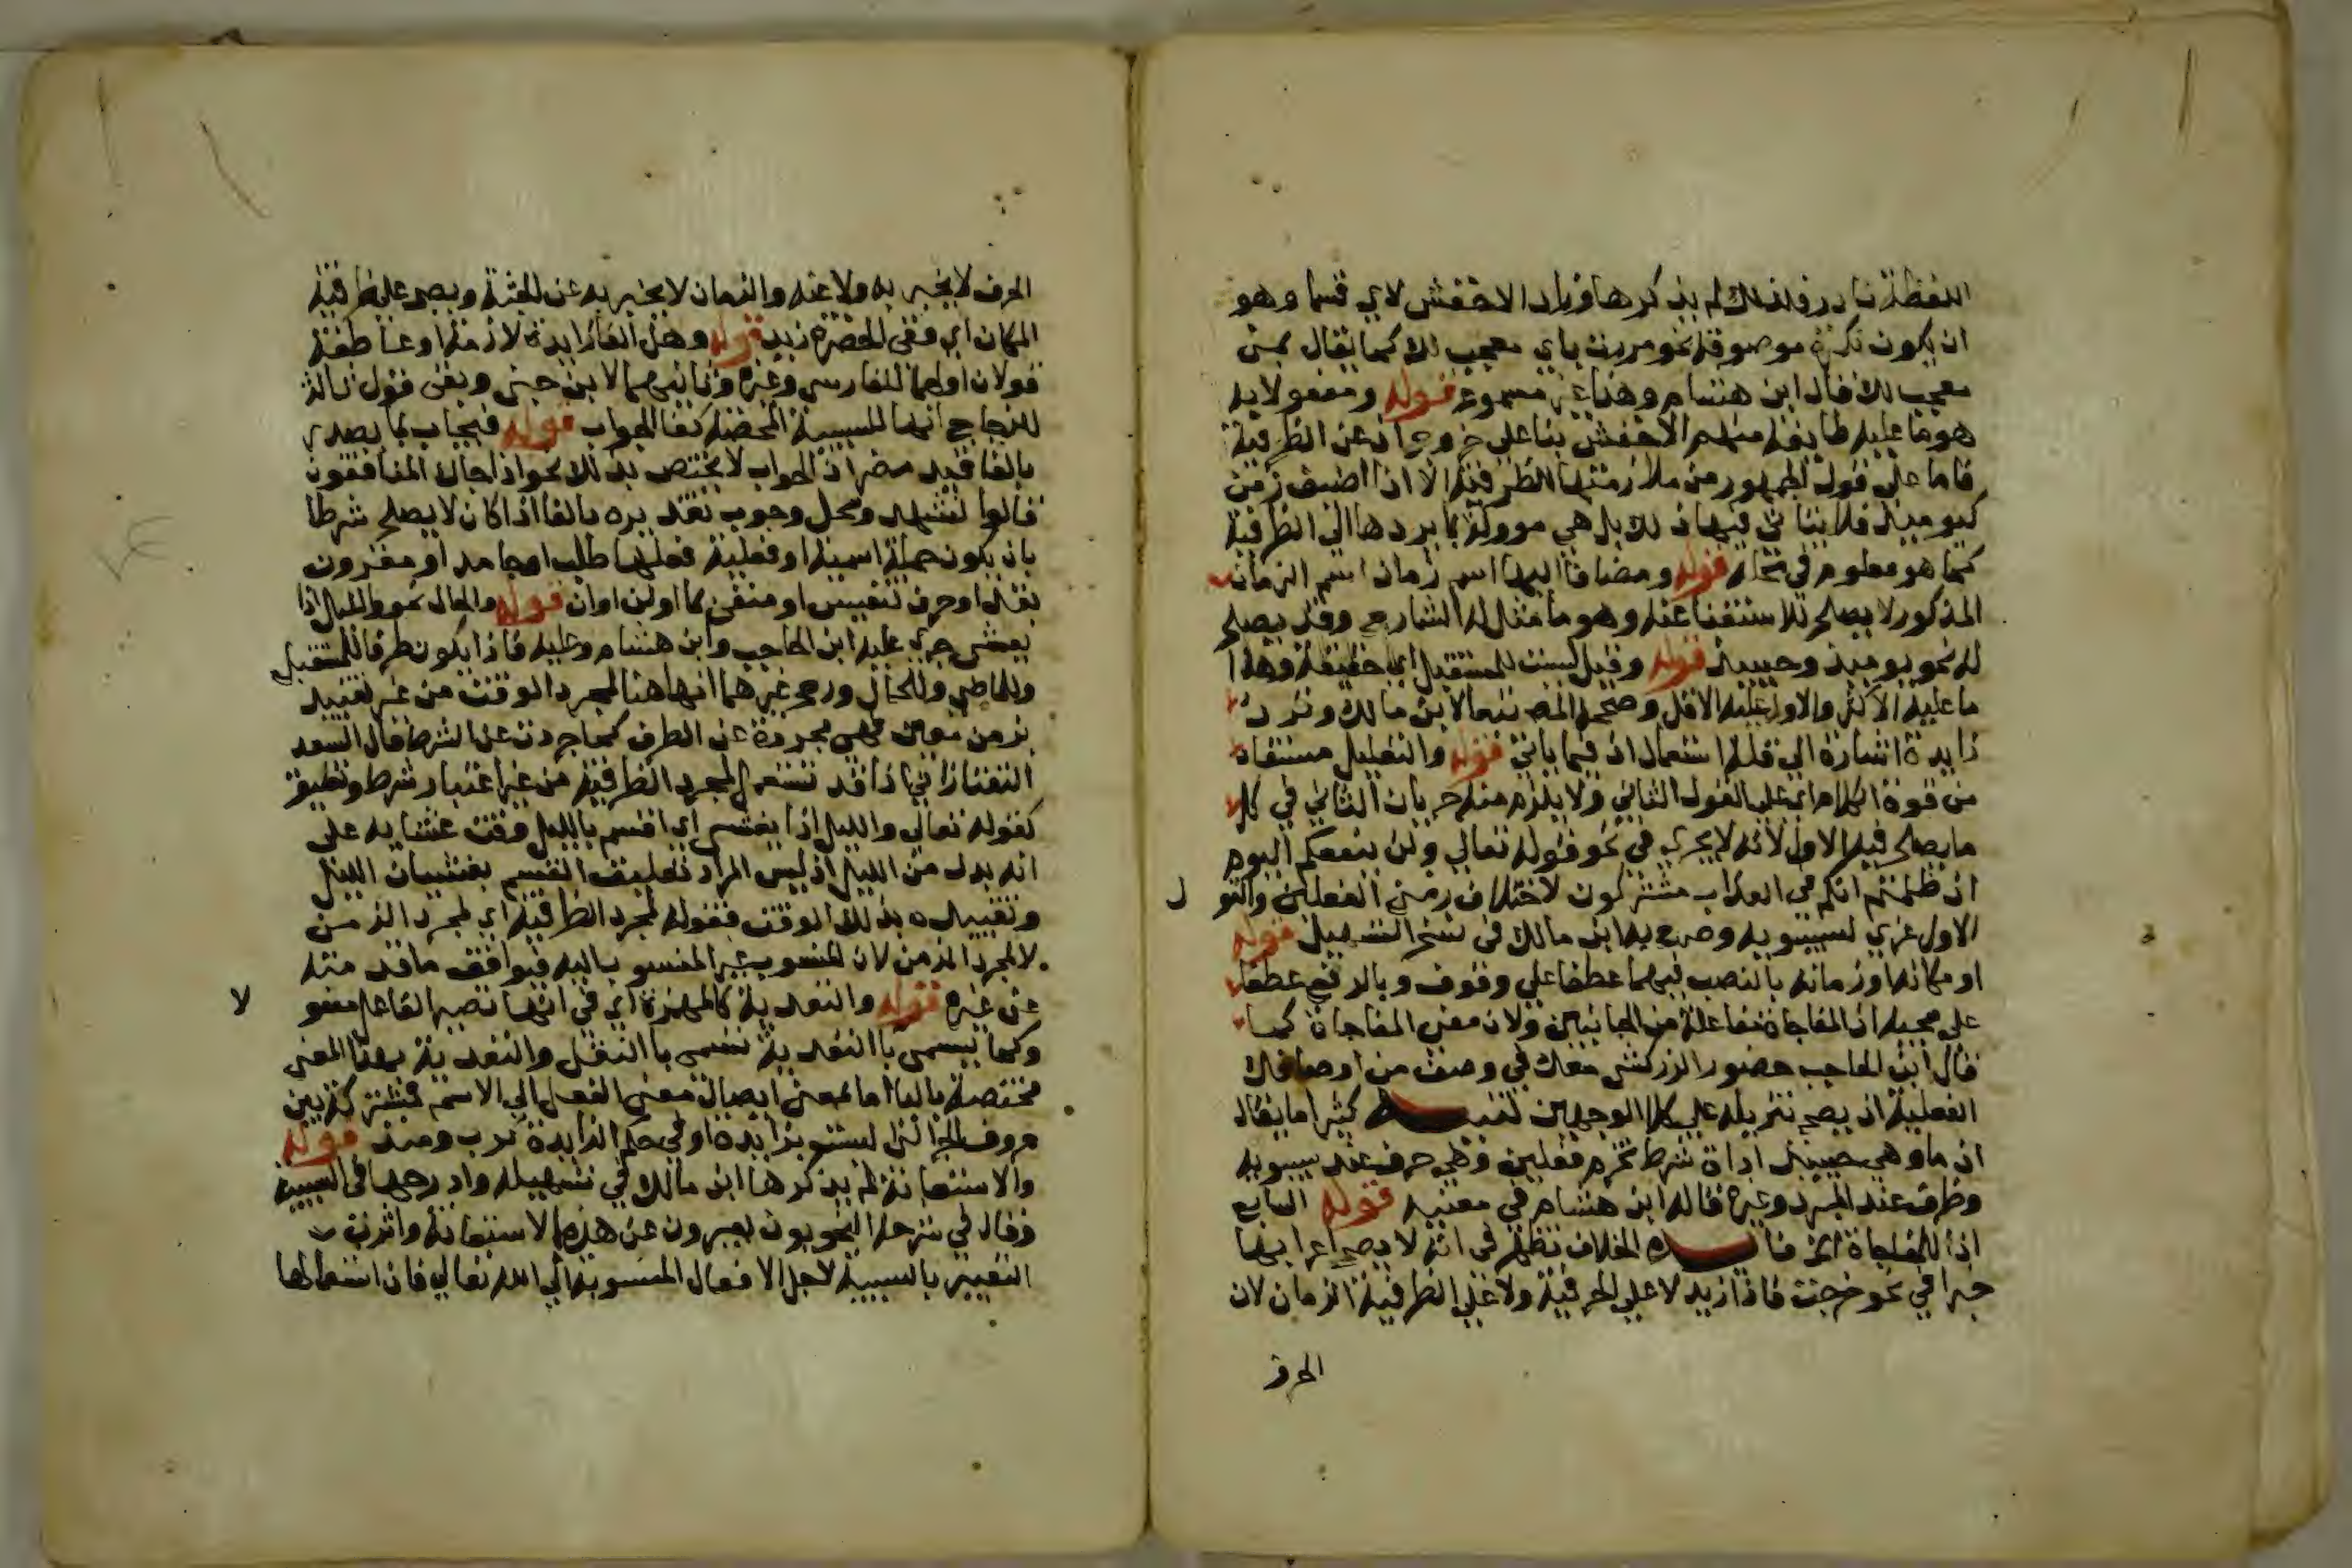 اللفظة نادر فلذلك لم يذكرها وزاد الاخفش لاي قسما وهو
ان يكون نكرة موصوفة نحو مررت باي معجب لك كما يقال بمن
معجب لك قال ابن هشام وهذا غير مسموع قوله ومفعولا به
هو ما عليه طايفة منهم الاخفش بنا على خروجها عن الظرفية
فاما على قول الجمهور من ملازمتها الظرفية الا اذا اضيف زمن
كيوميذ فلا يتاتى فيها ذلك بل هي موولة بما يردها الى الظرفية
كما هو معلوم في محله قوله ومضافا اليها اسم زمان اسم الزمان
المذكور لا يصلح للاستغنا عنه وهو ما مثل له الشارح وقد يصلح
له نحو يوميذ وحينيذ قوله وقيل ليست للمستقبل اي حقيقة وهذا
ما عليه الاكثر والاول عليه الاقل وصححه المص تبعا لابن مالك وترد
زايدة اشارة الى قلة استعمال اذ فيما ياتي قوله والتعليل مستفاد
من قوة الكلام اي على القول الثاني ولا يلزم منه جريان الثاني في كل
ما يصلح فيه الاول لانه لا يجري في نحو قوله تعالى ولن ينفعكم اليوم
اذ ظلمتم انكم في العذاب مشتركون لاختلاف زمني الفعلين والقو
ل
الاول عزي لسيبويه وصرح به ابن مالك في نسخ التسهيل قوله
او مكانه او زمانه بالنصب فيهما عطفا على وقوف وبالرفع عطفا
على مجيه اذ المفاجاة مفاعلة من الجانبين ولان معنى المفاجاة كما
قال ابن الحاجب حضور الزركشي معك في وصف من اوصافك
الفعلية اذ يصح تنزيله على كلا الوجهين تنبيه كثيرا ما يقال
اذ ما وهي حينيذ اداة شرط تجزم فعلين وهي حرف عند سيبويه
وظرف عند المبرد وغيره قاله ابن هشام في مغنيه قوله السابع
اذا للمفاجاة الخ فايده الخلاف تظهر في انه لا يصح اعرابها
خبرا في نحو خرجت فاذا زيد لا على الحرفية ولا على الظرفية الزمان لان
الحرف
الحرف لا يخبر به ولا عنه والزمان لا يخبر به عن الجثة ويصح على ظرفية
المكان اي ففي الحضرة زيد قوله وهل الفا زايدة لازمة او عاطفة
قولان اولهما للفارسي وغيره وثانيهما لابن جني وبقى قول ثالث
للزجاج انها للسببية المحضة كفا الجواب قوله فيجاب بما يصدر
بالفا قيد مضر اذ الجواب لا يختص بذلك نحو اذا جاك المنافقون
قالوا نشهد ومحل وجوب تصديره بالفا اذا كان لا يصلح شرطا
بان يكون جملة اسمية او فعلية فعلها طلب او جامد او مقرون
بقد او حرف تنفيس او منفي بما او لن او ان قوله والحال نحو والليل اذا
يغشى جري عليه ابن الحاجب وابن هشام وعليه فاذا يكون ظرفا للمستقبل
وللماضي وللحال ورجح غيرهما انها هنا لمجرد الوقت من غير تقييد
بزمن معين فهي مجردة عن الظرف كما جردت عن الشرط قال السعد
التفتازاني اذا قد تستعمل لمجرد الظرفية من غير اعتبار شرط وتعليق
كقوله تعالى والليل اذا يغشى اي اقسم بالليل وقت غشيانه على
انه بدل من الليل اذ ليس المراد تعليق القسم بغشيان الليل
وتقييده بذلك الوقت فقوله لمجرد الظرفية اي لمجرد الزمن
لا لمجرد الزمن لان المنسوب غير المنسوب اليه فيوافق ما قدمته
عن غيره قوله والتعدية كالهمزة اي في انها تصير الفاعل مفعو
لا
وكما تسمى با التعدية تسمى با النقل والتعدية بهذا المعنى
مختصة بالبا اما بمعنى ايصال معنى الفعل الى الاسم فمشتركة بين
حروف الجر التي ليست بزايدة او في حكم الزايدة كرب ومنذ قوله
والاستعانة لم يذكرها ابن مالك في تسهيله وادرجها في السببية
وقال في شرحه النحويون يعبرون عن هذه بالاستعانة واثرت
التعبير بالسببية لاجل الافعال المنسوبة الى الله تعالى فان استعمالها